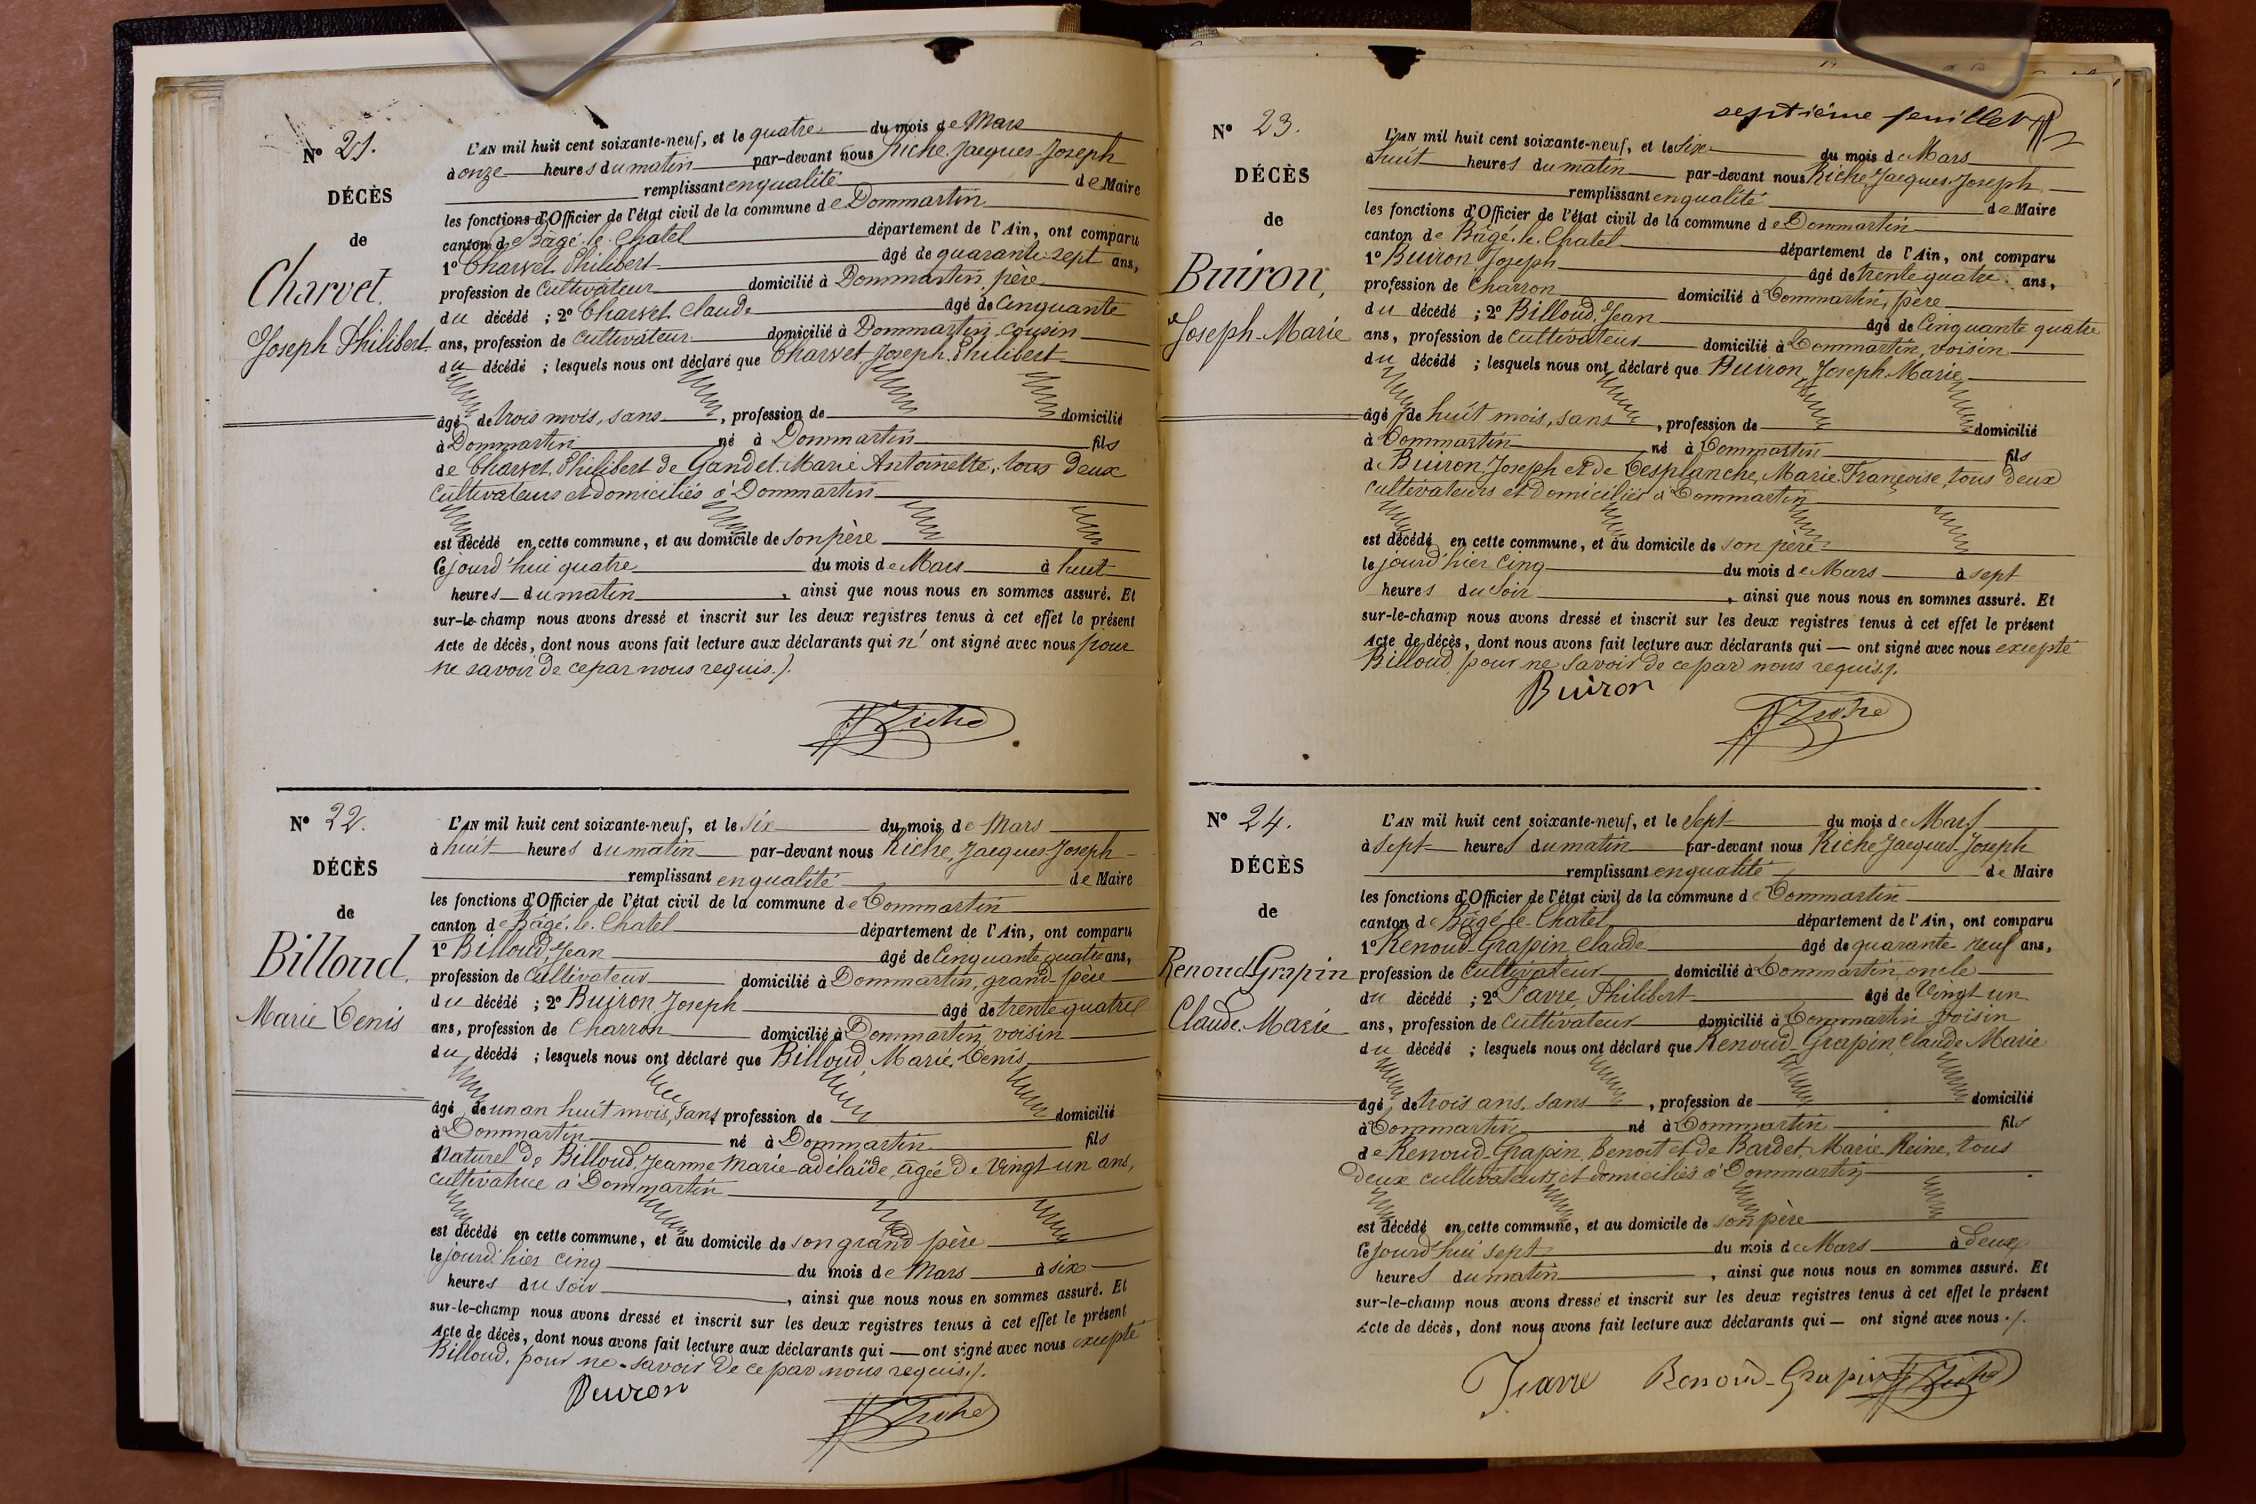 N° 21.
DÉCÈS
de
Charvet
Joseph Philibert
L'AN mil huit cent soixante-neuf, et le quatre du mois de Mars
à onze heures du matin par-devant nous Riche, Jacques Joseph
remplissant en qualité de Maire
les fonctions d'Officier de l'état civil de la commune de Dommartin
canton de Bâgé-le-Chatel département de l'Ain, ont comparu
1° Charvet Philibert âgé de quarante-sept ans,
profession de Cultivateur domicilié à Dommartin, père
du décédé ; 2° Charvet Claude âgé de Cinquante
ans, profession de Cultivateur domicilié à Dommartin, Cousin
du décédé ; lesquels nous ont déclaré que Charvet, Joseph Philibert
âgé de trois mois, sans , profession de domicilié
à Dommartin né à Dommartin fils
de Charvet, Philibert de Gandet, Marie Antoinette, tous deux
Cultivateurs et domiciliés à Dommartin
est décédé en cette commune, et au domicile de son père
le jourd'hui quatre du mois de Mars à huit
heures du matin , ainsi que nous nous en sommes assuré. Et
sur-le-champ nous avons dressé et inscrit sur les deux registres tenus à cet effet le présent
Acte de décès, dont nous avons fait lecture aux déclarants qui n'ont signé avec nous pour
ne savoir de ce par nous requis./.
Riche
N° 22.
DÉCÈS
de
Billoud
Marie Denis
L'AN mil huit cent soixante-neuf, et le six du mois de Mars
à huit heures du matin par-devant nous Riche, Jacques Joseph
remplissant en qualité de Maire
les fonctions d'Officier de l'état civil de la commune de Dommartin
canton de Bâgé-le-Chatel département de l'Ain, ont comparu
1° Billoud, Jean âgé de Cinquante quatre ans,
profession de Cultivateur domicilié à Dommartin, grand-père
du décédé ; 2° Buiron Joseph âgé de trente quatre
ans, profession de Charron domicilié à Dommartin, voisin
du décédé ; lesquels nous ont déclaré que Billoud, Marie Denis
âgé de un an huit mois, sans profession de domicilié
à Dommartin né à Dommartin fils
Naturel de Billoud, Jeanne Marie adelaïde, agée de vingt un ans,
cultivatrice à Dommartin
est décédé en cette commune, et au domicile de son grand père
le jourd'hier cinq du mois de Mars à six
heures du soir , ainsi que nous nous en sommes assuré. Et
sur-le-champ nous avons dressé et inscrit sur les deux registres tenus à cet effet le présent
Acte de décès, dont nous avons fait lecture aux déclarants qui ont signé avec nous excepté
Billoud, pour ne savoir de ce par nous requis./.
Buiron
Riche
septième feuillet
N° 23.
DÉCÈS
de
Buiron,
Joseph-Marie
L'AN mil huit cent soixante-neuf, et le six du mois de Mars
à huit heures du matin par-devant nous Riche, Jacques Joseph
remplissant en qualité de Maire
les fonctions d'Officier de l'état civil de la commune de Dommartin
canton de Bâgé-le-Chatel département de l'Ain, ont comparu
1° Buiron Joseph âgé de trente quatre ans,
profession de Charron domicilié à Dommartin, père
du décédé ; 2° Billoud, Jean âgé de Cinquante quatre
ans, profession de Cultivateur domicilié à Dommartin, voisin
du décédé ; lesquels nous ont déclaré que Buiron, Joseph-Marie
âgé de huit mois, sans , profession de domicilié
à Dommartin né à Dommartin fils
de Buiron, Joseph et de Desplanche, Marie Françoise, tous deux
Cultivateurs et domiciliés à Dommartin
est décédé en cette commune, et au domicile de son père
le jourd'hier Cinq du mois de Mars à sept
heures du Soir , ainsi que nous nous en sommes assuré. Et
sur-le-champ nous avons dressé et inscrit sur les deux registres tenus à cet effet le présent
Acte de décès, dont nous avons fait lecture aux déclarants qui ont signé avec nous excepté
Billoud, pour ne savoir de ce par nous requis/.
Buiron
Riche
N° 24.
DÉCÈS
de
Renoud-Grapin
Claude-Marie
L'AN mil huit cent soixante-neuf, et le Sept du mois de Mars
à sept heures du matin par-devant nous Riche Jacques Joseph
remplissant en qualité de Maire
les fonctions d'Officier de l'état civil de la commune de Dommartin
canton de Bâgé-le-Chatel département de l'Ain, ont comparu
1° Renoud-Grapin, Claude âgé de quarante-neuf ans,
profession de Cultivateur domicilié à Dommartin, oncle
du décédé ; 2° Favre, Philibert âgé de Vingt un
ans, profession de Cultivateur domicilié à Dommartin voisin
du décédé ; lesquels nous ont déclaré que Renoud-Grapin, Claude Marie
âgé de trois ans, sans , profession de domicilié
à Dommartin né à Dommartin fils
de Renoud-Grapin, Benoit et de Bardet, Marie Reine, tous
deux cultivateurs et domiciliés à Dommartin
est décédé en cette commune, et au domicile de son père
le jourd'hui sept du mois de Mars à deux
heures du matin , ainsi que nous nous en sommes assuré. Et
sur-le-champ nous avons dressé et inscrit sur les deux registres tenus à cet effet le présent
Acte de décès, dont nous avons fait lecture aux déclarants qui ont signé avec nous ./.
Favre Renoud-Grapin Riche